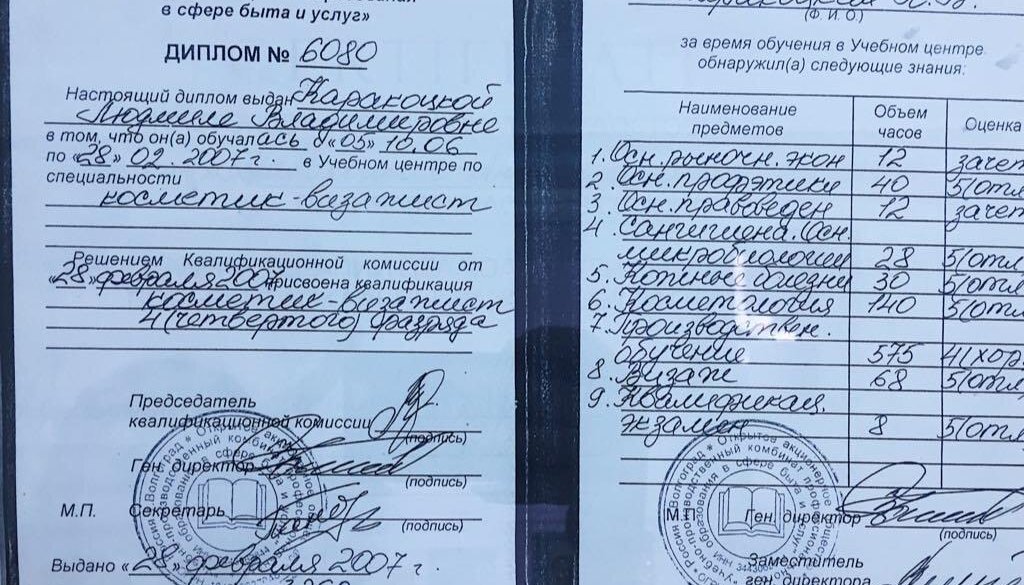 в сфере быта и услуг»
ДИПЛОМ № 6080
Настоящий диплом выдан Каракоцкой
Людмиле Владимировне
в том, что он(а) обучалась с «05» 10.06
по «28» 02.2007г. в Учебном центре по
специальности
косметик-визажист
Решением Квалификационной комиссии от
«28» февраля 2007 присвоена квалификация
косметик-визажист
4 (четвертого) разряда
Председатель
квалификационной комиссии
(подпись)
Ген. директор
(подпись)
М.П. Секретарь
(подпись)
Выдано «28» февраля 2007 г.
(Ф. И. О.)
за время обучения в Учебном центре
обнаружил(а) следующие знания:
Наименование предметов Объем часов Оценка
1. Осн. рыночн. экон 12 зачет
2. Осн. профэтики 40 5(отл
3. Осн. правоведен 12 зачет
4. Сангигиена. Осн.
микробиологии 28 5(отл.
5. Кожные болезни 30 5(отл
6. Косметология 140 5(отл.
7. Производствен.
обучение 575 4(хор.
8. Визаж 68 5(отл
9. Квалификац.
экзамен 8 5(отл.
М.П. Ген. директор
(подпись)
Заместитель
ген. директора